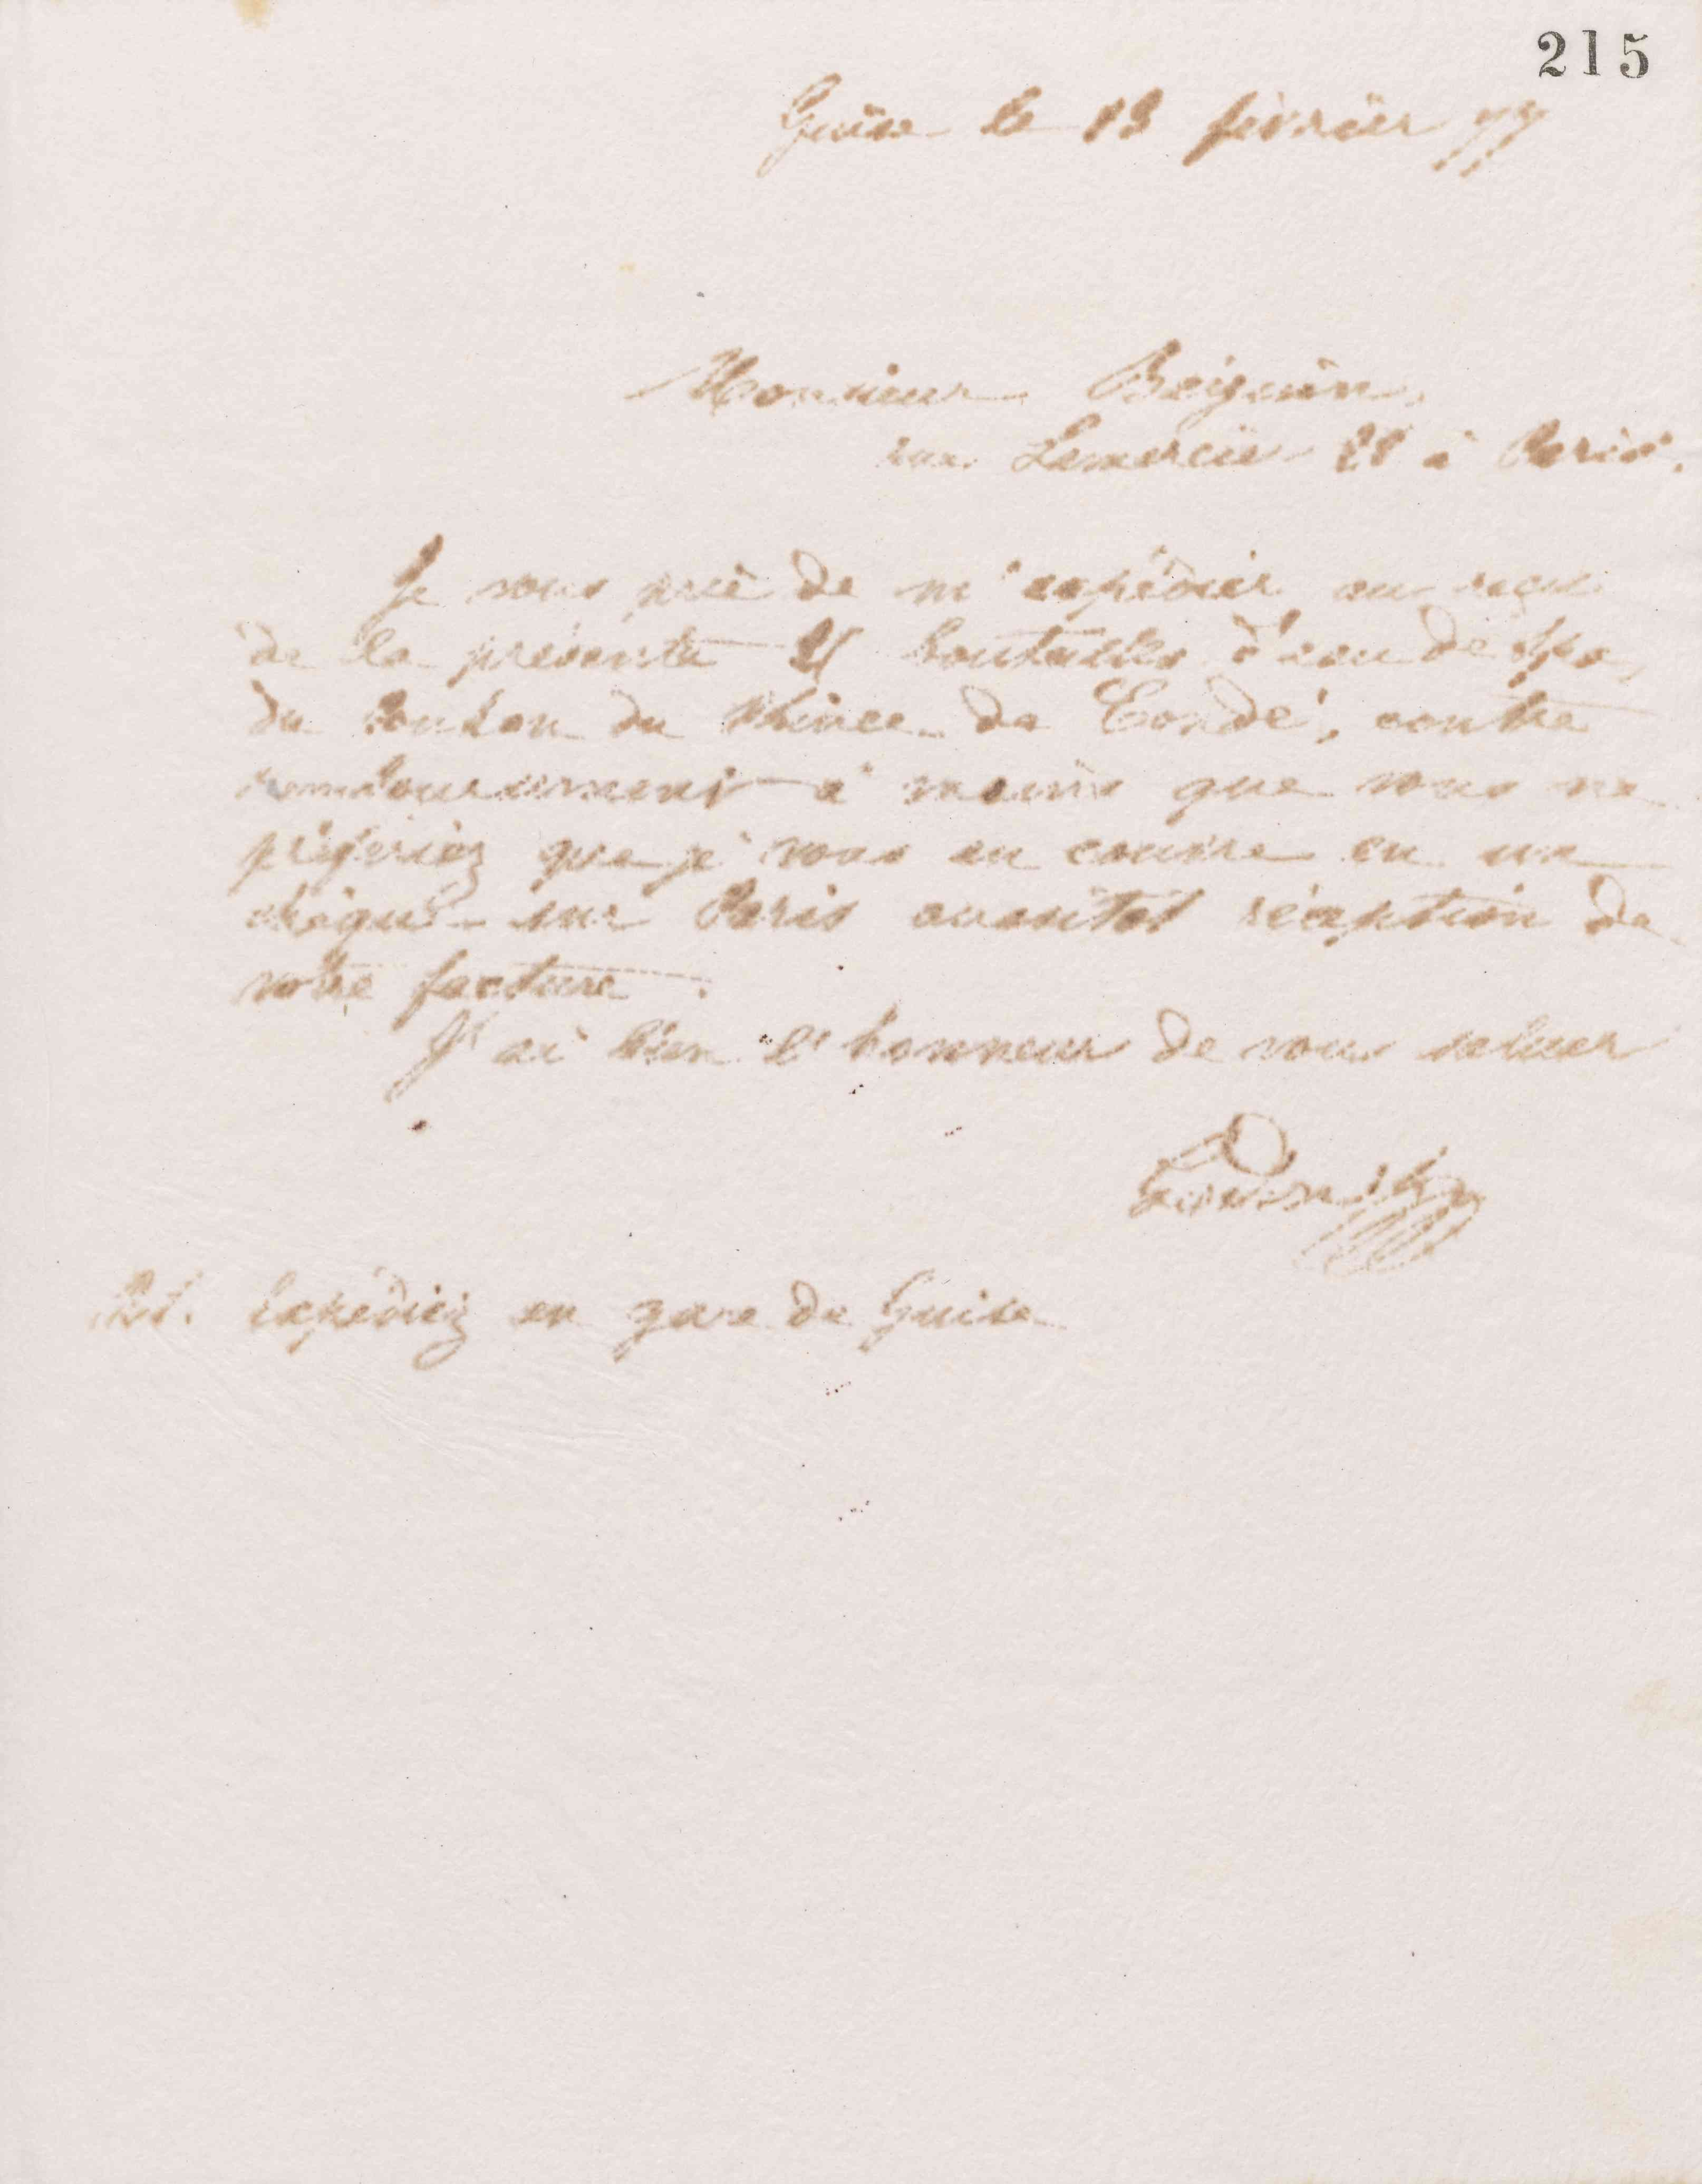 215
Guise le 13 février 77
Monsieur Beiguin
rue Lemercier 21 à Paris.
Je vous prie de m'expédier au reçu
de la présente bouteilles d'eau de Spa,
du du Prince de Condé, contre
remboursement à moins que vous ne
préfériez que je vous en couvre en un
chèque sur Paris aussitôt réception de
votre facture.
J'ai bien l'honneur de vous saluer
Godin
Expédiez en gare de Guise